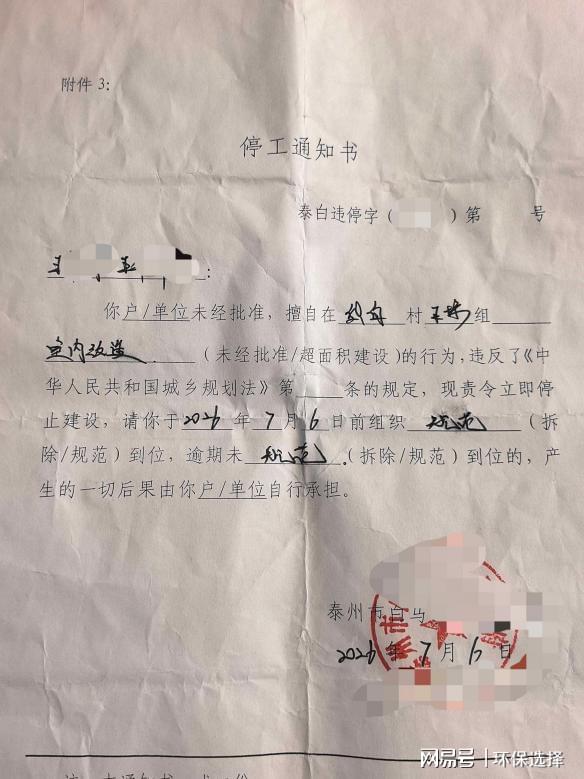 附件3:
停工通知书
泰白违停字( )第 号
你户/单位未经批准，擅自在 村 组
室内改造 (未经批准/超面积建设)的行为,违反了《中
华人民共和国城乡规划法》第 条的规定，现责令立即停
止建设，请你于2026年7月6日前组织 规范 (拆
除/规范)到位，逾期未 规范 (拆除/规范)到位的，产
生的一切后果由你户/单位自行承担。
泰州市白马
2026年7月6日
网易号|环保选择